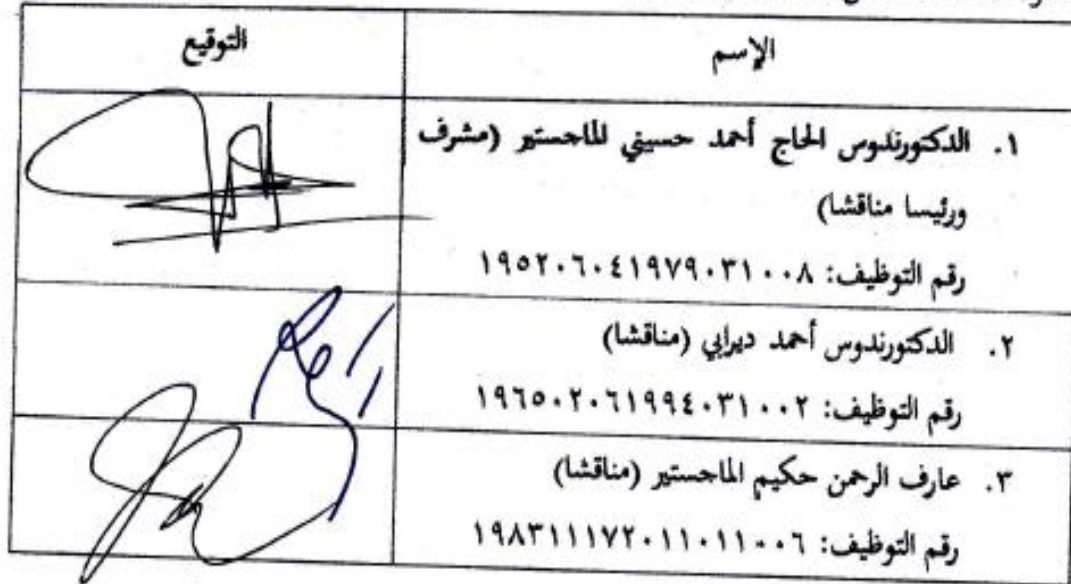 الإسم
التوقيع
١. الدكتورندوس الحاج أحمد حسيني للماجستير (مشرف
ورئيسا مناقشا)
رقم التوظيف: ١٩٥٢٠٦٠٤١٩٧٩٠٣١٠٠٨
٢. الدكتورندوس أحمد ديرابي (مناقشا)
رقم التوظيف: ١٩٦٥٠٢٠٦١٩٩٤٠٣١٠٠٢
٣. عارف الرحمن حكيم الماجستير (مناقشا)
رقم التوظيف: ١٩٨٣١١١٧٢٠١١٠١١٠٠٦